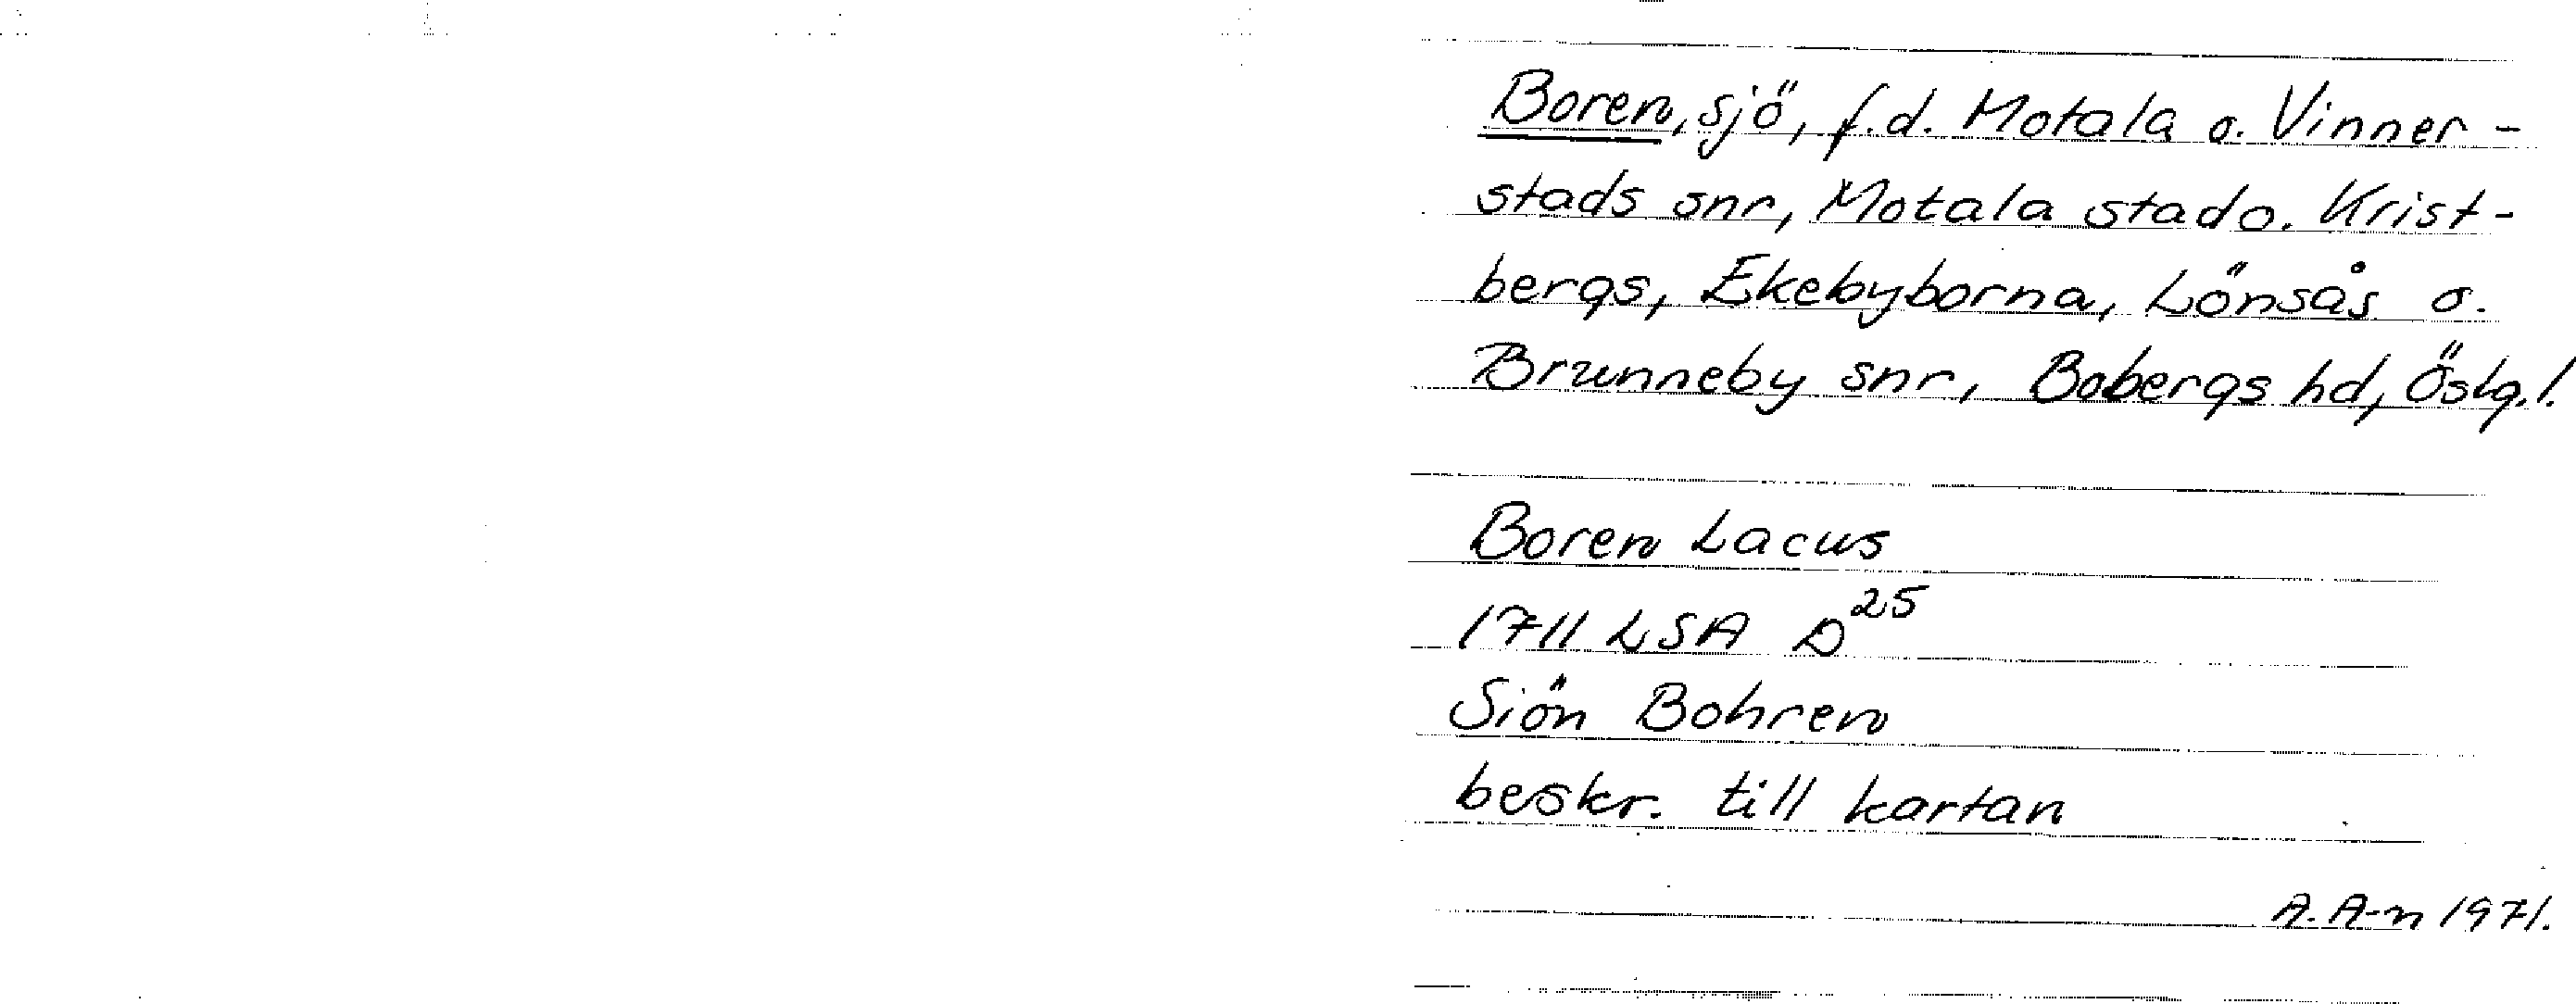 Boren, sjö, f.d. Motala o. Vinner-
stads snr, Motala stad o. Krist-
bergs, Ekebyborna, Lönsås o.
Brunneby snr, Bobergs hd, Östg.l.
Boren Lacus
1711 LSA D25
Siön Bohren
beskr. till kartan
A. A-n 1971.